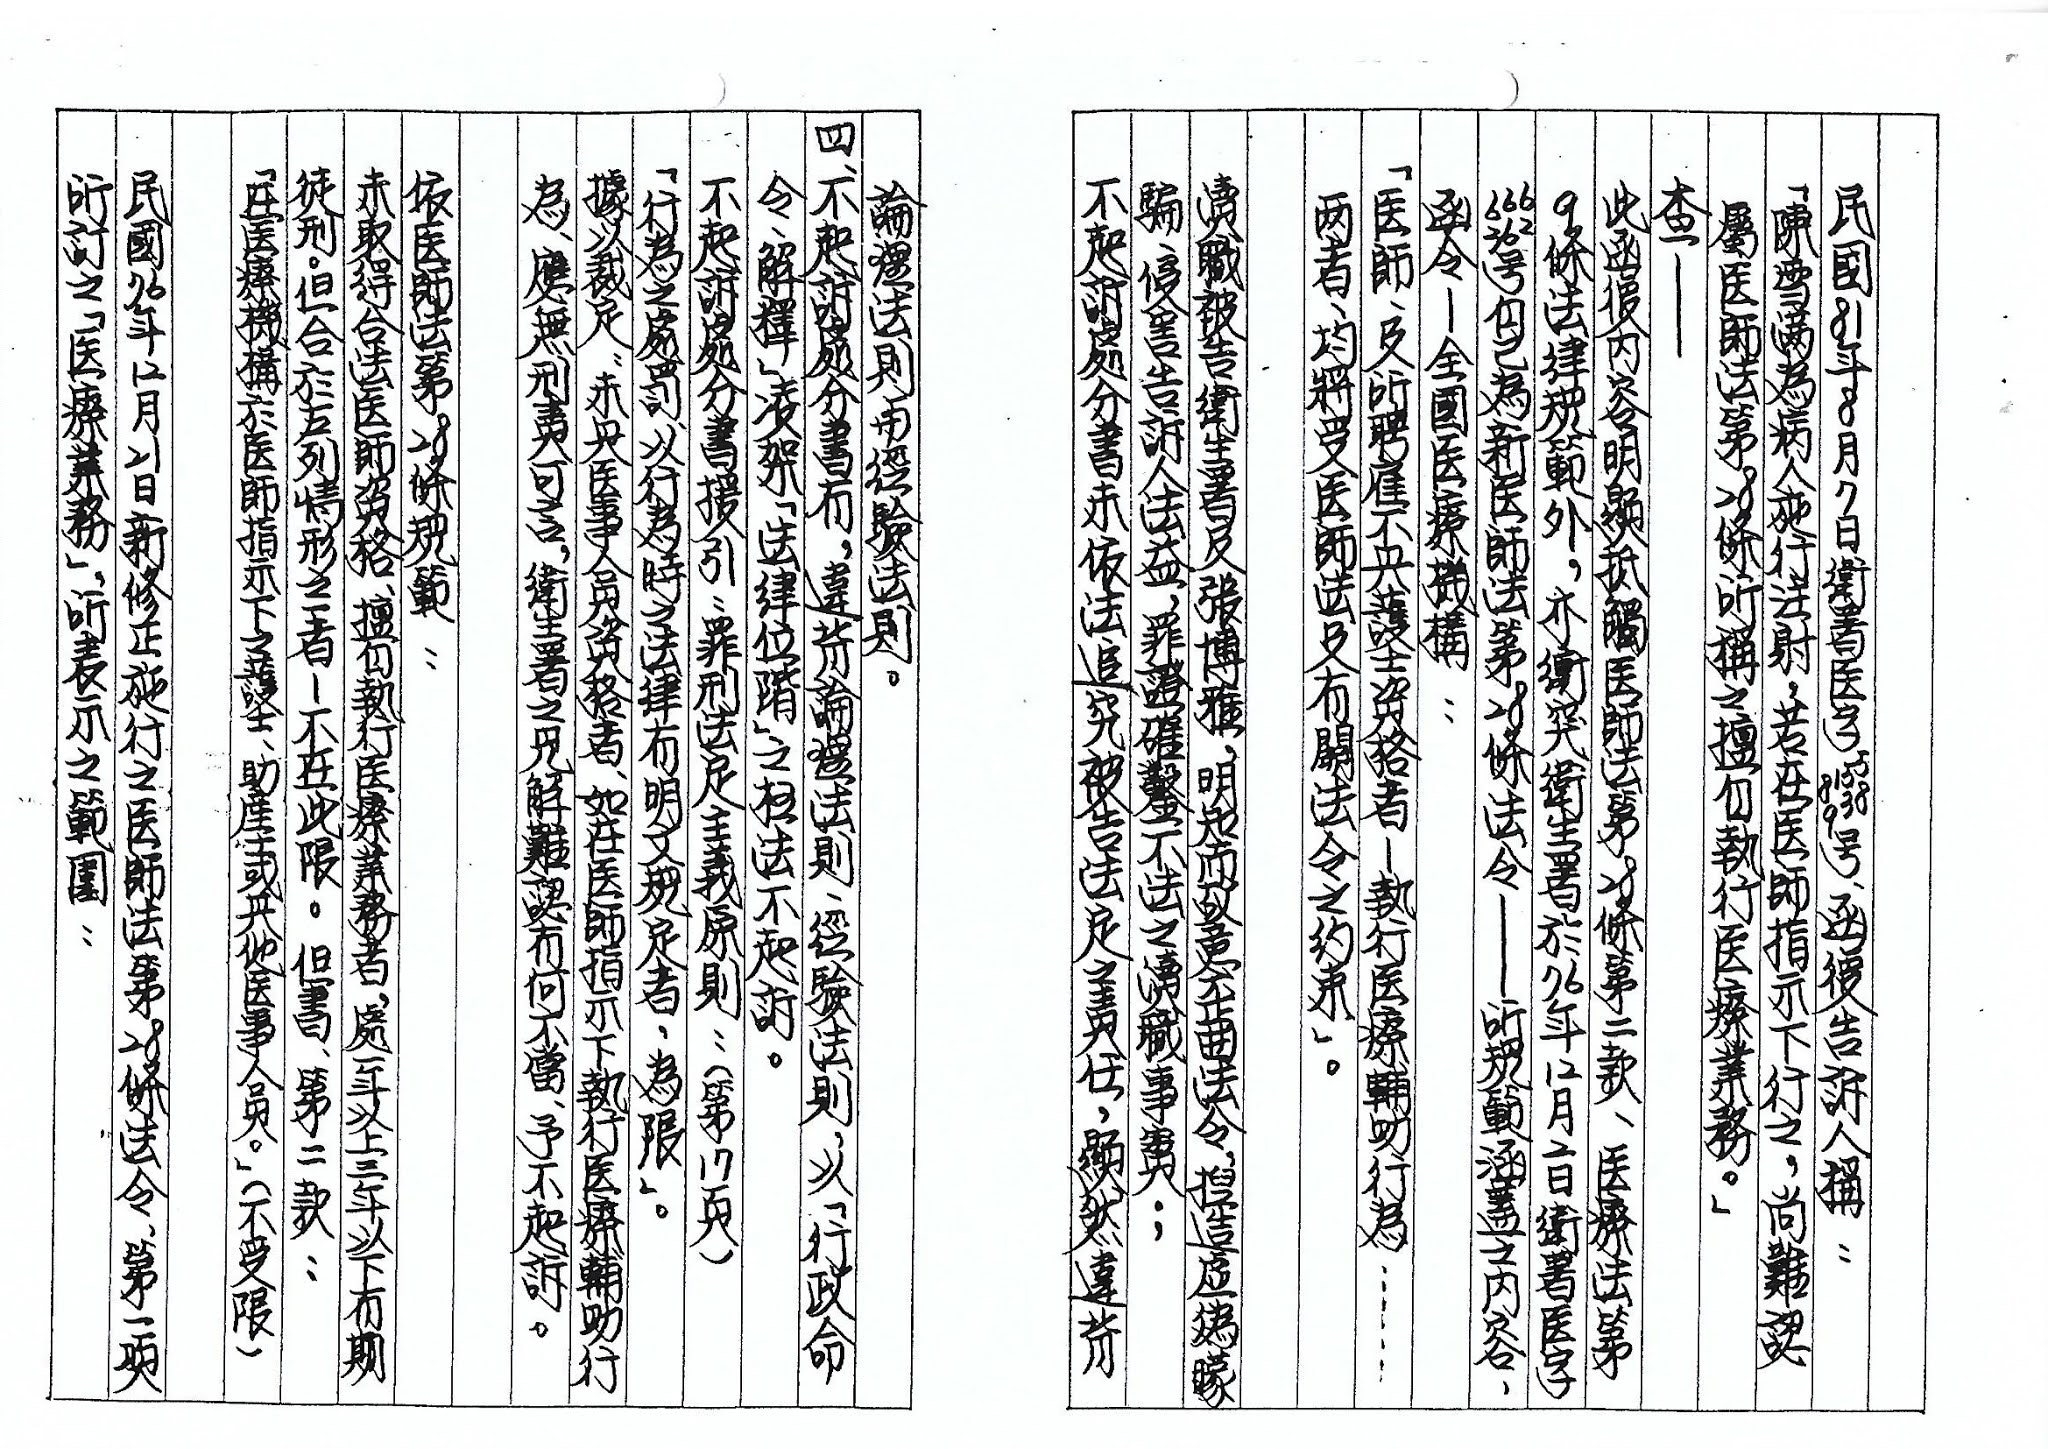 民國81年8月7日衛署医字8155389号、函復告訴人稱：
「陳雪满為病人施行注射，若在医師指示下行之，尚難認
屬医師法第28條所稱之擅自執行医療業務。」
查——
此函復内容明顯抵觸医師法第28條第二款、医療法第
9條法律規範外，亦衝突衛生署於76年12月2日衛署医字
666262号但已為新医師法第28條法令——所規範涵蓋之内容、
函令－全國医療機構：
「医師、及所聘雇不具護士資格者－執行医療輔助行為……
两者、均將受医師法及有關法令之約束」。
瀆職被告衛生署及張博雅、明知而故意歪曲法令，捏造虛偽矇
騙、侵害告訴人法益，罪證確鑿不法之瀆職事實。；
不起訴處分書未依法追究被告法定之責任，顯然違背
論理法則與經驗法則。
四、不起訴處分書有，違背論理法則、經驗法則，以「行政命
令、解釋」凌架「法律位階」之枉法不起訴。
不起訴處分書援引：罪刑法定主義原則：（第17頁）
「行為之處罰、以行為時之法律有明文規定者，為限」。
據以裁定：未具医事人員資格者、如在医師指示下執行医療輔助行
為、應無刑責可言，衛生署之見解難認有何不當、予不起訴。
依医師法第28條規範：
未取得合法医師資格、擅自執行医療業務者，處一年以上三年以下有期
徒刑。但合於左列情形之一者－不在此限。但書、第二款：
「在医療機構於医師指示下之護士、助産士或其他医事人員。」（不受限）
民國76年12月21日新修正施行之医師法第28條法令、第一項
所訂之「医療業務」，所表示之範圍：